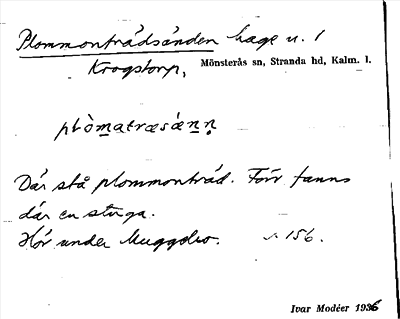 Plommonträdsänden hage u. 1
Krogstorp, Mönsterås sn, Stranda hd, Kalm. l.
plòmatræsæ̀nn
Där stå plommonträd. Förr fanns
där en stuga.
Hör under Muggebo. s. 156.
Ivar Modéer 1936